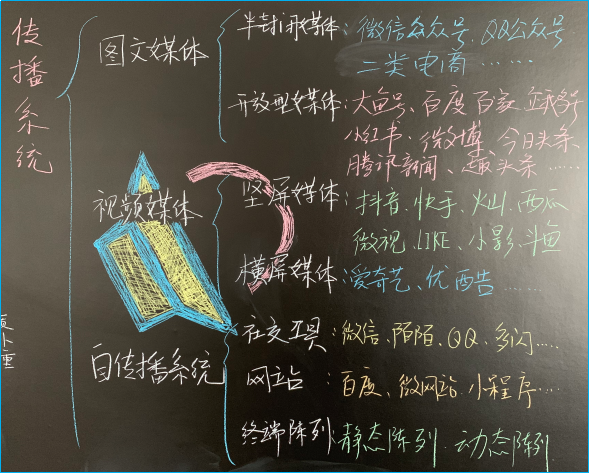 传播系统
图文媒体
半封闭媒体:微信公众号、QQ公众号
二类电商……
开放型媒体:大鱼号、百度百家、
小红书、微博、今日头条、
腾讯新闻、趣头条……
视频媒体
竖屏媒体:抖音、快手、火山、西瓜
微视、LIKE、小影、斗鱼
横屏媒体:爱奇艺、优酷……
自传播系统
社交工具:微信、陌陌、QQ、多闪……
网站:百度、微网站、小程序……
终端阵列:静态阵列、动态阵列